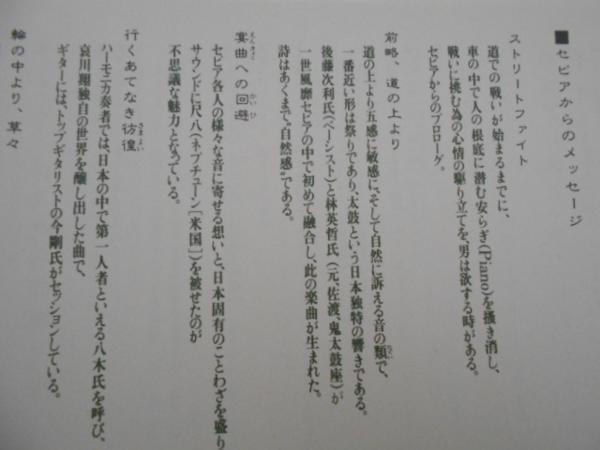 ■セピアからのメッセージ
ストリートファイト
道での戦いが始まるまでに、
車の中で人の根底に潜む安らぎ(Piano)を掻き消し、
戦いに挑む為の心情の駆り立てを、男は欲する時がある。
セピアからのプロローグ。
前略、道の上より
道の上より五感に敏感に、そして自然に訴える音の類で、
一番近い形は祭りであり、太鼓という日本独特の響きである。
後藤次利氏(ベーシスト)と林英哲氏(元、佐渡、鬼太鼓座)が
一世風靡セピアの中で初めて融合し、此の楽曲が生まれた。
詩はあくまで“自然感”である。
宴曲への回避
セピア各人の様々な音に寄せる想いと、日本固有のことわざを盛り
サウンドに尺八(ネプチューン[米国])を被せたのが
不思議な魅力となっている。
行くあてなき彷徨
ハーモニカ奏者では、日本の中で第一人者といえる八木氏を呼び、
哀川翔独自の世界を醸し出した曲で、
ギターには、トップギタリストの今剛氏がセッションしている。
絵の中より、草々